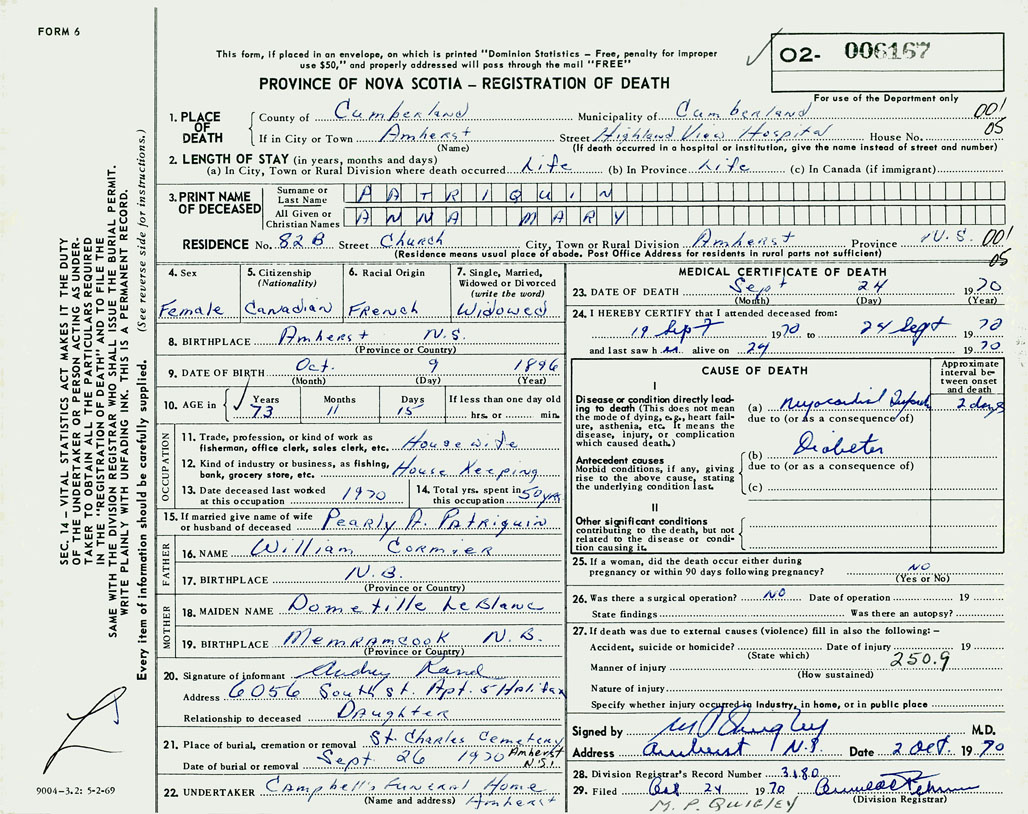 FORM 6
This form, if placed in an envelope, on which is printed "Dominion Statistics – Free, penalty for improper
use $50," and properly addressed will pass through the mail "FREE"
02- 006167
PROVINCE OF NOVA SCOTIA – REGISTRATION OF DEATH
For use of the Department only
1. PLACE OF DEATH
County of Cumberland Municipality of Cumberland 001
If in City or Town Amherst Street Highland View Hospital House No. 05
(Name) (If death occurred in a hospital or institution, give the name instead of street and number)
2. LENGTH OF STAY (in years, months and days)
(a) In City, Town or Rural Division where death occurred Life (b) In Province Life (c) In Canada (if immigrant)
3. PRINT NAME OF DECEASED
Surname or Last Name PATRIQUIN
All Given or Christian Names ANNA MARY
RESIDENCE No. 82B Street Church City, Town or Rural Division Amherst Province N.S. 001
(Residence means usual place of abode. Post Office Address for residents in rural parts not sufficient) 05
4. Sex
Female
5. Citizenship
(Nationality)
Canadian
6. Racial Origin
French
7. Single, Married,
Widowed or Divorced
(write the word)
Widowed
8. BIRTHPLACE Amherst N.S.
(Province or Country)
9. DATE OF BIRTH Oct. 9 1896
(Month) (Day) (Year)
10. AGE in Years Months Days If less than one day old
73 11 15 hrs. or min.
OCCUPATION
11. Trade, profession, or kind of work as
fisherman, office clerk, sales clerk, etc. Housewife
12. Kind of industry or business, as fishing,
bank, grocery store, etc. House Keeping
13. Date deceased last worked
at this occupation 1970
14. Total yrs. spent in
this occupation 50 yrs
15. If married give name of wife
or husband of deceased Pearly A. Patriquin
FATHER
16. NAME William Cormier
17. BIRTHPLACE N.B.
(Province or Country)
MOTHER
18. MAIDEN NAME Dometille LeBlanc
19. BIRTHPLACE Memramcook N.B.
(Province or Country)
20. Signature of informant Audrey Rand
Address 6056 South St. Apt. 5 Halifax
Relationship to deceased Daughter
21. Place of burial, cremation or removal St. Charles Cemetery
Amherst
Date of burial or removal Sept. 26 1970 N.S.
22. UNDERTAKER Campbell's Funeral Home
(Name and address) Amherst
MEDICAL CERTIFICATE OF DEATH
23. DATE OF DEATH Sept 24 1970
(Month) (Day) (Year)
24. I HEREBY CERTIFY that I attended deceased from:
19 Sept 1970 to 24 Sept 1970
and last saw h er alive on 24 1970
CAUSE OF DEATH
Approximate
interval be-
tween onset
and death
I
Disease or condition directly lead-
ing to death (This does not
mean the mode of dying, e.g., heart fail-
ure, asthenia, etc. It means the
disease, injury, or complication
which caused death.)
(a) Myocardial Infarct 2 days
due to (or as a consequence of)
Antecedent causes
Morbid conditions, if any, giving
rise to the above cause, stating
the underlying condition last.
(b) Diabetes
due to (or as a consequence of)
(c)
II
Other significant conditions
contributing to the death, but not
related to the disease or condi-
tion causing it.
25. If a woman, did the death occur either during
pregnancy or within 90 days following pregnancy? NO
(Yes or No)
26. Was there a surgical operation? NO Date of operation 19
State findings Was there an autopsy?
27. If death was due to external causes (violence) fill in also the following: –
Accident, suicide or homicide? Date of injury 19
(State which)
250.9
Manner of injury
(How sustained)
Nature of injury
Specify whether injury occurred in Industry, in home, or in public place
Signed by M P Quigley M.D.
Address Amherst N.S Date 2 Oct. 1970
28. Division Registrar's Record Number 3180
29. Filed Oct 24 1970
(Division Registrar)
M. P. QUIGLEY
SEC. 14 – VITAL STATISTICS ACT MAKES IT THE DUTY
OF THE UNDERTAKER OR PERSON ACTING AS UNDER-
TAKER TO OBTAIN ALL THE PARTICULARS REQUIRED
IN THE "REGISTRATION OF DEATH" AND TO FILE THE
SAME WITH THE DIVISION REGISTRAR WHO SHALL ISSUE THE BURIAL PERMIT.
WRITE PLAINLY WITH UNFADING INK. THIS IS A PERMANENT RECORD.
Every item of information should be carefully supplied. (See reverse side for instructions.)
9004-3.2: 5-2-69